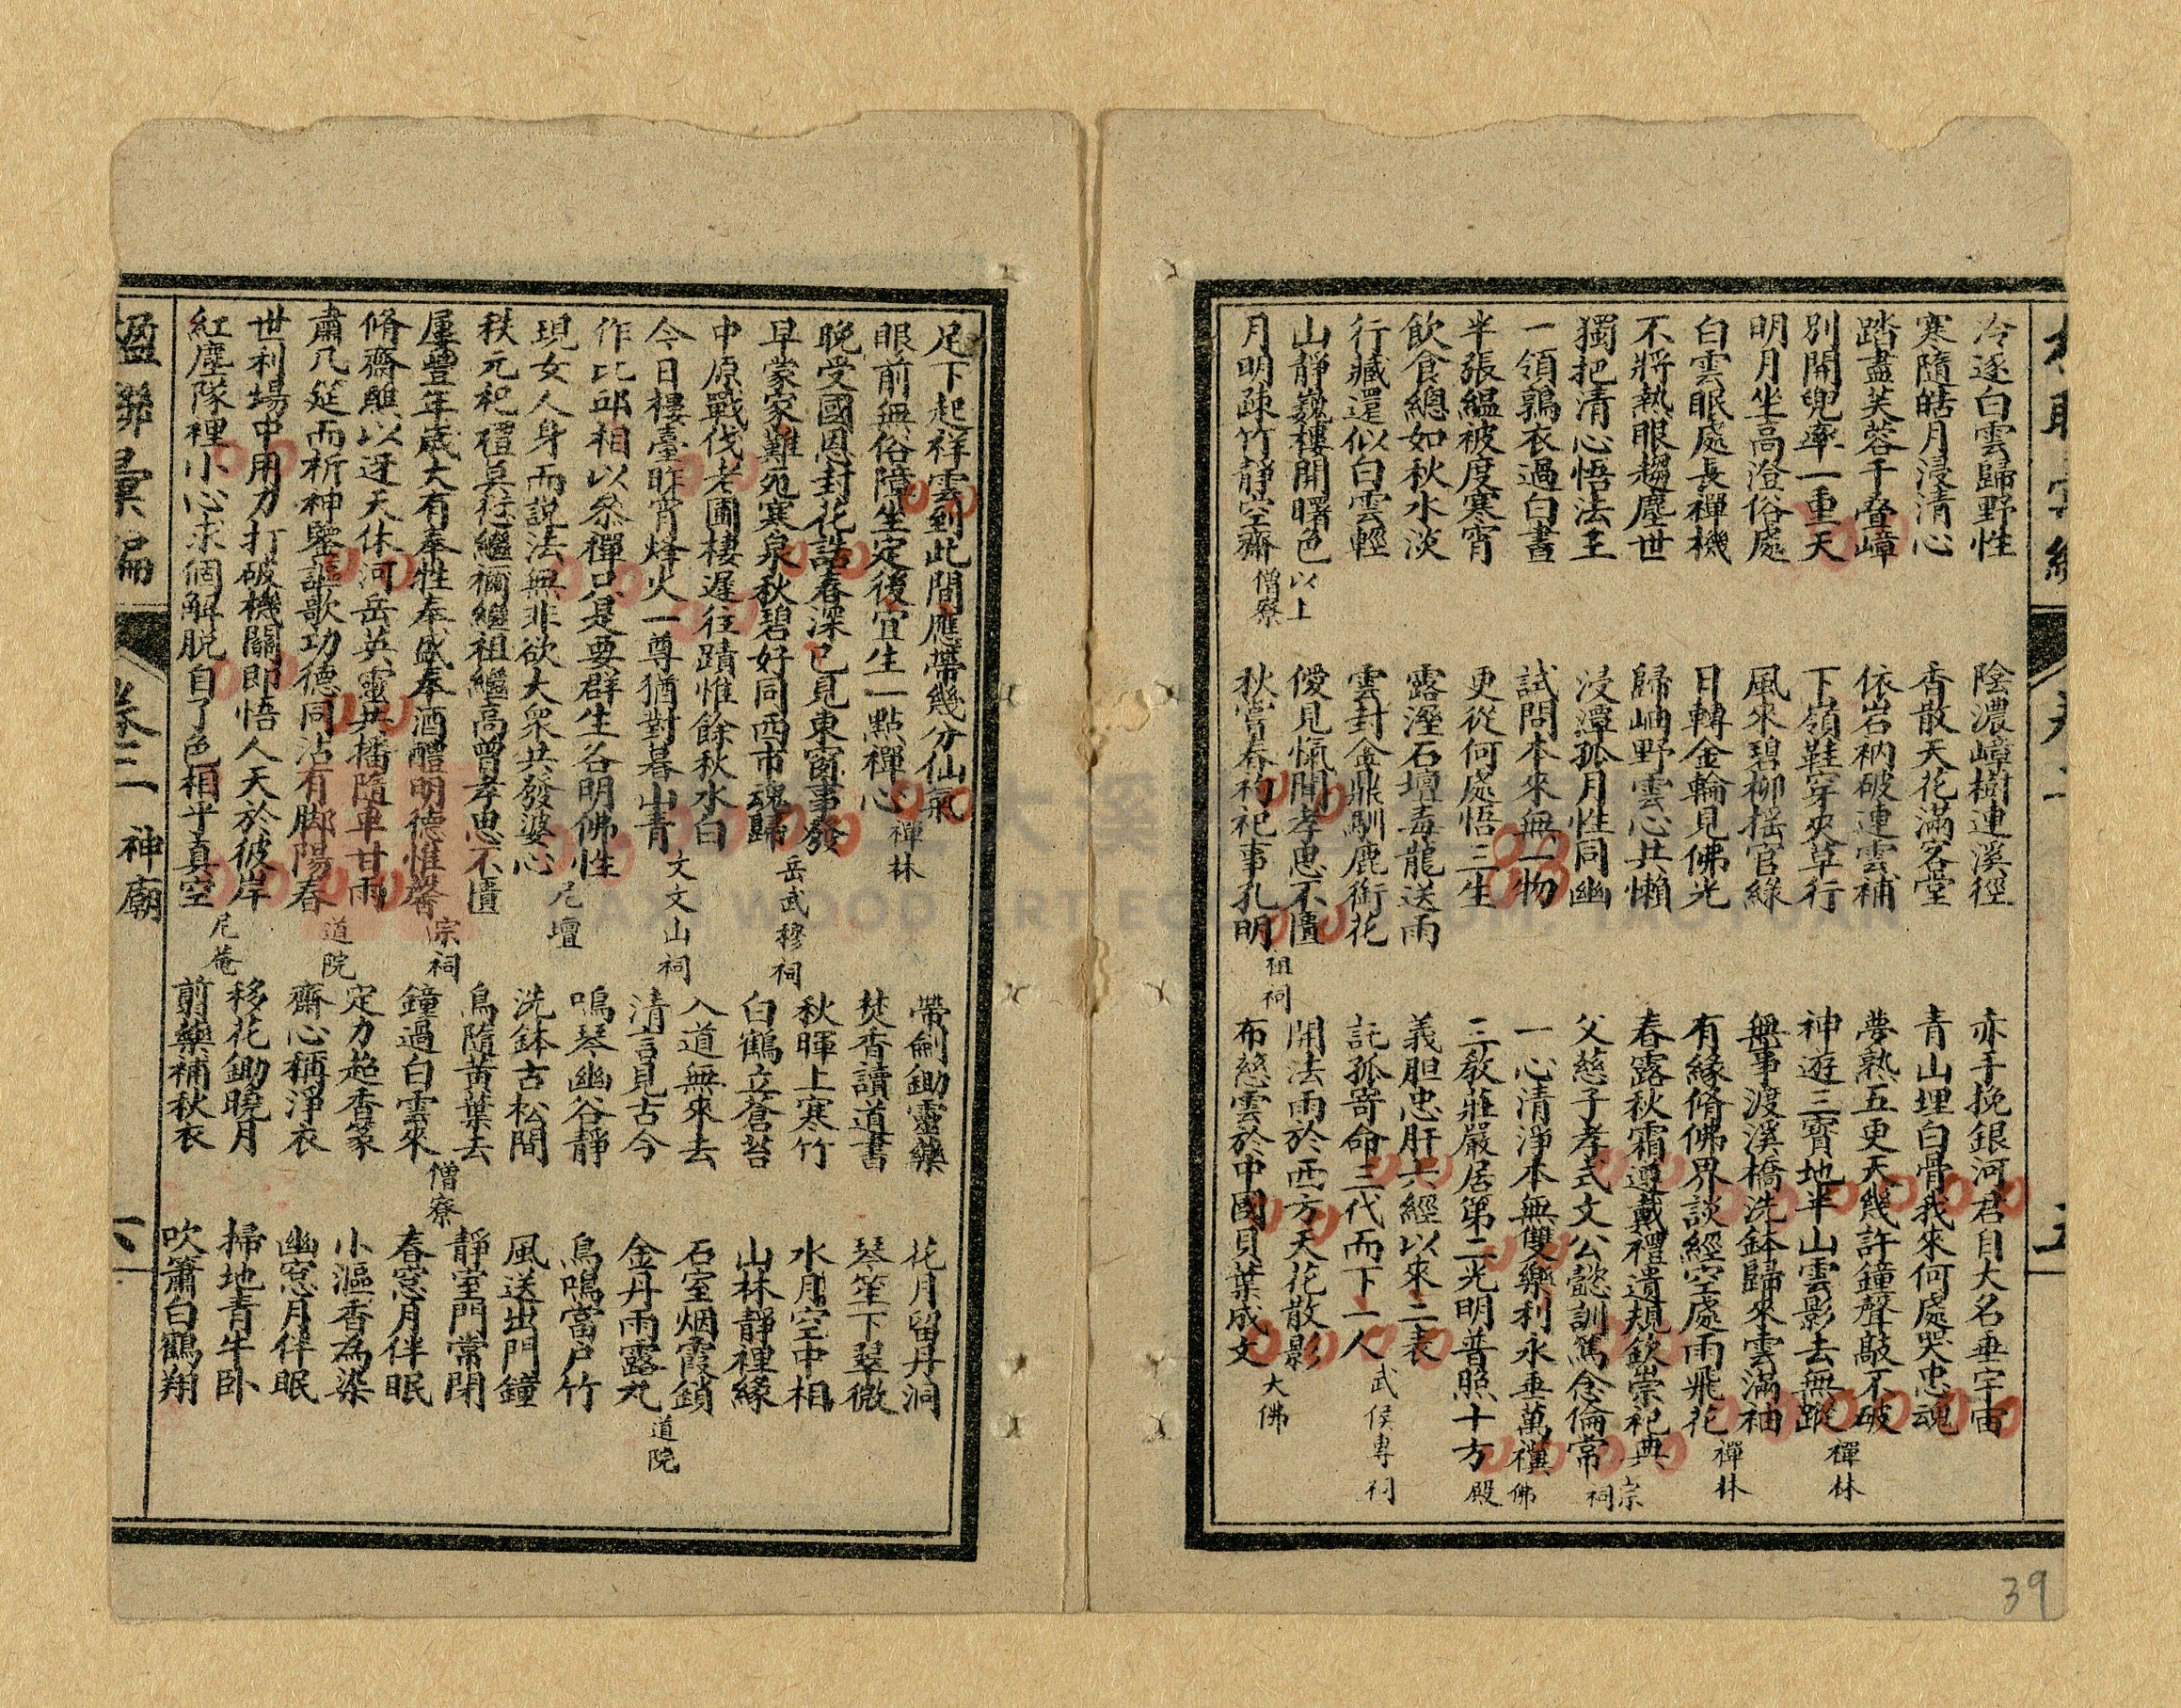 冷逐白雲歸野性
寒隨皓月浸清心
踏盡芙蓉千叠嶂
別開兜率一重天
明月坐高澄俗慮
白雲眠處長禪機
不將熱眼趨塵世
獨把清心悟法王
一領鶉衣過白晝
半張縕被度寒宵
飲食總如秋水淡
行藏還似白雲輕
山靜巍樓開曙色 以上
月明疎竹靜空齋 僧寮
陰濃嶂樹連溪徑
香散天花滿客堂
依岩衲破連雲補
下嶺鞋穿夾草行
風來碧柳搖官綠
日轉金輪見佛光
歸岫野雲心共懶
浸潭孤月性同幽
試問本來無一物
更從何處悟三生
露溼石壇毒龍送雨
雲封金鼎馴鹿銜花
僾見愾聞孝思不匱
秋嘗春礿祀事孔明 祖祠
亦手挽銀河君自大名垂宇宙
青山埋白骨我來何處哭忠魂
夢熟五更天幾許鐘聲敲不破
神遊三寳地半山雲影去無蹤 禪林
無事渡溪橋洗鉢歸來雲滿袖
有緣脩佛界談經空處雨飛花 禪林
春露秋霜遵戴禮遺規欽崇祀典 宗
父慈子孝式文公懿訓篤念倫常 祠
一心清淨本無雙樂利永垂萬禩 佛
三教莊嚴居第二光明普照十方 殿
義胆忠肝六經以來二表
託孤寄命三代而下一人 武侯專祠
開法雨於西方天花散影
布慈雲於中國貝葉成文 大佛
39
足下起祥雲到此間應帶幾分仙氣
眼前無俗障坐定後宜生一點禪心 禪林
晚受國恩封花誥春深已見東窗事發
早蒙家難苑寒泉秋碧好同西市魂歸 岳武穆祠
中原戰伐老圃棲遲往蹟惟餘秋水白
今日樓臺昨宵烽火一尊猶對暮山青 文文山祠
作比邱相以叅禪只是要群生各明佛性
現女人身而說法無非欲大衆共發婆心 尼壇
秩元祀禮莫愆繼禰繼祖繼高曾孝思不匱
屢豐年歲大有奉牲奉盛奉酒醴明德惟馨 宗祠
脩齋醮以迓天休河岳英靈共播隨車甘雨
肅几筵而析神鑒謳歌功德同沾有脚陽春 道院
世利場中用力打破機關即悟人天於彼岸
紅塵隊裡小心求個解脫自了色相乎真空 尼菴
帶劍鋤靈藥
焚香讀道書
秋暉上寒竹
白鶴立蒼苔
入道無來去
清言見古今
鳴琴幽谷靜
洗鉢古松間
鳥隨黃葉去
鐘過白雲來 僧寮
定力超香篆
齋心稱淨衣
移花鋤曉月
剪藥補秋衣
花月留丹洞
琴笙下翠微
水月空中相
山林靜裡緣
石室烟霞鎖
金丹雨露丸 道院
鳥鳴當户竹
風送出門鐘
靜室門常閉
春窓月伴眠
小漚香為染
幽窓月伴眠
掃地青牛卧
吹簫白鶴翔
楹聯彙編 卷三 神廟 六